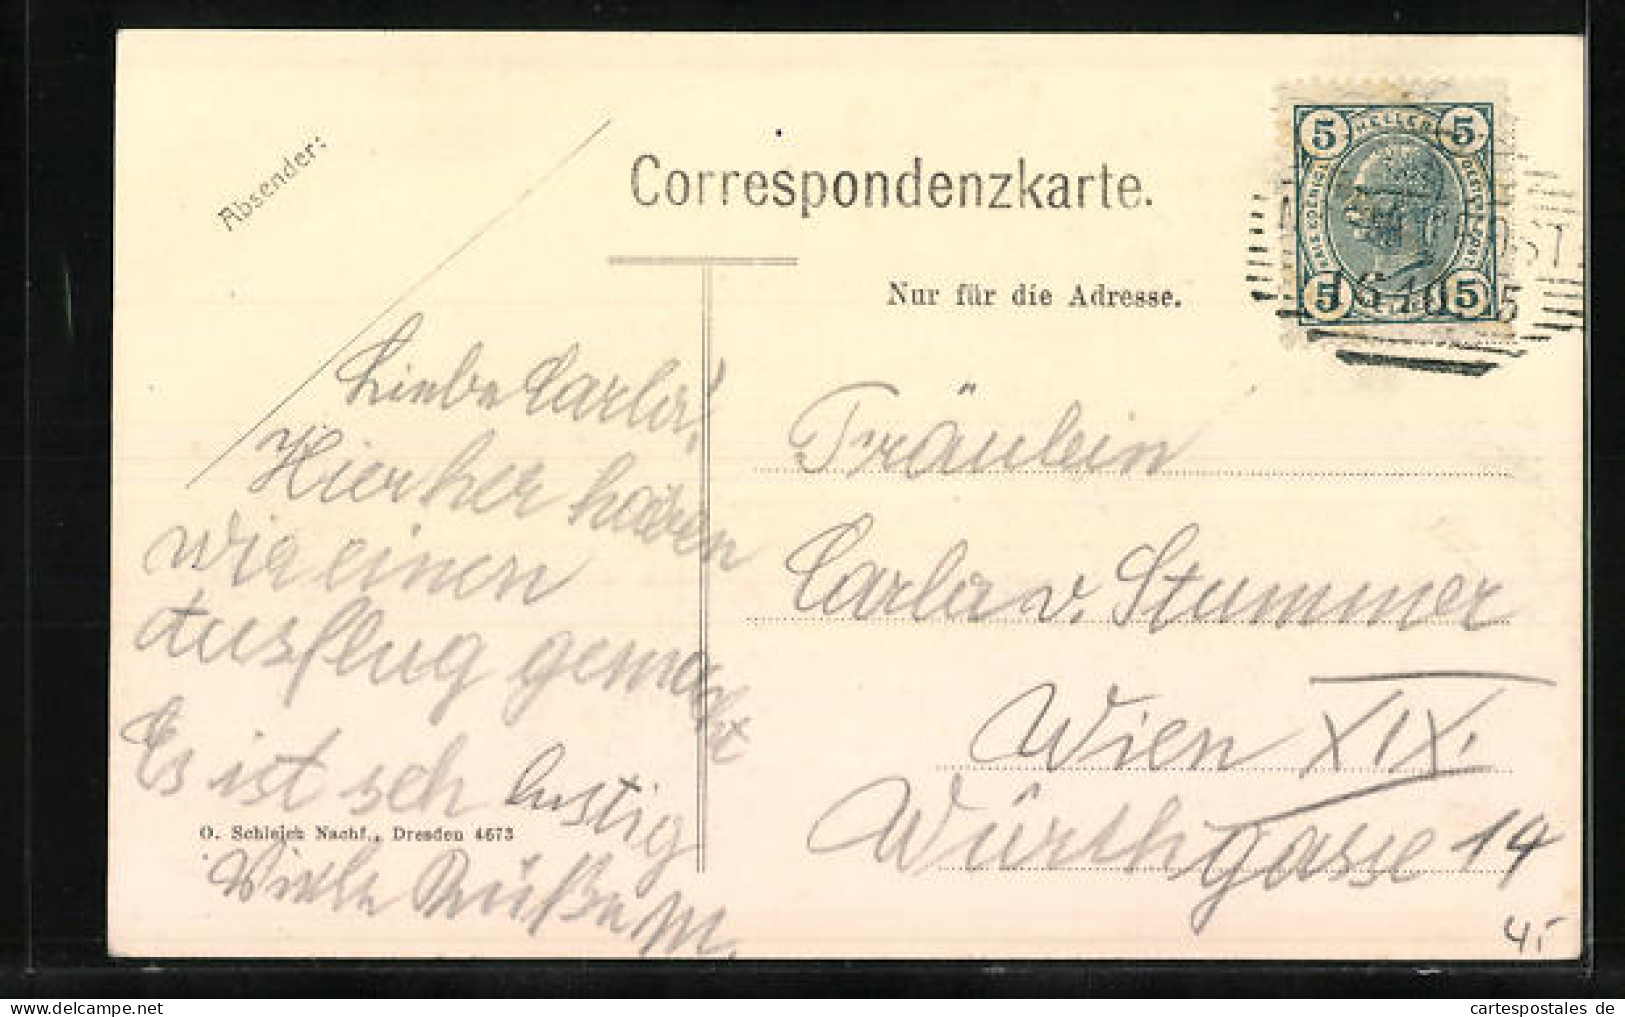 Absender:
Correspondenzkarte.
Nur für die Adresse.
5 HELLER 5
5 5
16 10 5
Liebe Carla!
Hierher haben
wir einen
Ausflug gemacht
Es ist seh lustig
Viele Küße M.
Fräulein
Carla v. Stummer
Wien XIX.
Würthgasse 14
O. Schleich Nachf., Dresden 4673
4,-
cartespostales de